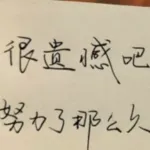 很遺憾吧
努力了那么久